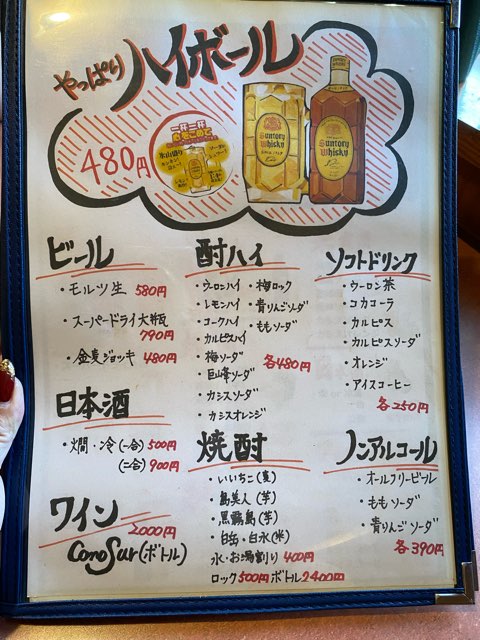 やっぱりハイボール
480円
一杯一杯
SUNTORY WHISKY
SUNTORY WHISKY
ビール
・モルツ生 580円
・スーパードライ大瓶
790円
・金麦ジョッキ 480円
日本酒
・燗・冷(一合) 500円
(二合) 900円
ワイン
2000円
Cono Sur(ボトル)
酎ハイ
・ウーロンハイ ・梅ロック
・レモンハイ ・青りんごソーダ
・コークハイ ・ももソーダ
・カルピスハイ
・梅ソーダ 各480円
・巨峰ソーダ
・カシスソーダ
・カシスオレンジ
焼酎
・いいちこ(麦)
・島美人(芋)
・黒霧島(芋)
・白岳・白水(米)
水・お湯割り 400円
ロック500円 ボトル2400円
ソフトドリンク
・ウーロン茶
・コカコーラ
・カルピス
・カルピスソーダ
・オレンジ
・アイスコーヒー
各250円
ノンアルコール
・オールフリービール
・ももソーダ
・青りんごソーダ
各390円